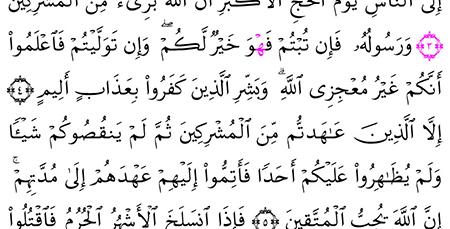 إِلَى ٱلنَّاسِ يَوۡمَ ٱلۡحَجِّ ٱلۡأَكۡبَرِ أَنَّ ٱللَّهَ بَرِيٓءٞ مِّنَ ٱلۡمُشۡرِكِينَ
۝٣ وَرَسُولُهُۥ فَإِن تُبۡتُمۡ فَهُوَ خَيۡرٞ لَّكُمۡۖ وَإِن تَوَلَّيۡتُمۡ فَٱعۡلَمُوٓاْ
أَنَّكُمۡ غَيۡرُ مُعۡجِزِي ٱللَّهِۗ وَبَشِّرِ ٱلَّذِينَ كَفَرُواْ بِعَذَابٍ أَلِيمٍ ۝٤
إِلَّا ٱلَّذِينَ عَٰهَدتُّم مِّنَ ٱلۡمُشۡرِكِينَ ثُمَّ لَمۡ يَنقُصُوكُمۡ شَيۡـٔٗا
وَلَمۡ يُظَٰهِرُواْ عَلَيۡكُمۡ أَحَدٗا فَأَتِمُّوٓاْ إِلَيۡهِمۡ عَهۡدَهُمۡ إِلَىٰ مُدَّتِهِمۡۚ
إِنَّ ٱللَّهَ يُحِبُّ ٱلۡمُتَّقِينَ ۝٥ فَإِذَا ٱنسَلَخَ ٱلۡأَشۡهُرُ ٱلۡحُرُمُ فَٱقۡتُلُواْ